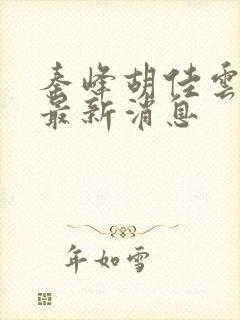 秦峰胡佳雲
最新消息
年如雪